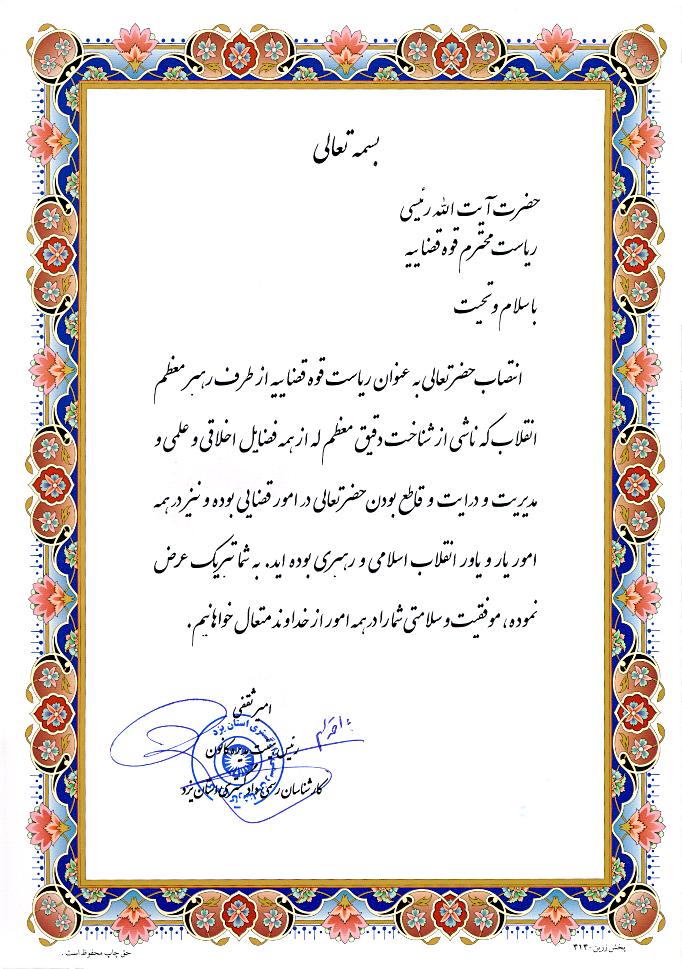 بسمه تعالی
حضرت آیت الله رئیسی
ریاست محترم قوه قضاییه
با سلام و تحیت
انتصاب حضرتعالی به عنوان ریاست قوه قضاییه از طرف رهبر معظم
انقلاب که ناشی از شناخت دقیق معظم له از همه فضایل اخلاقی و علمی و
مدیریت و درایت و قاطع بودن حضرتعالی در امور قضایی بوده و نیز در همه
امور یار و یاور انقلاب اسلامی و رهبری بوده اید. به شما تبریک عرض
نموده، موفقیت و سلامتی شما را در همه امور از خداوند متعال خواهانیم.
امیر ثقفی
رئیس هیئت مدیره کانون
کارشناسان رسمی دادگستری استان یزد
دادگستری استان یزد
پخش زرین-۳۱۳
حق چاپ محفوظ است.